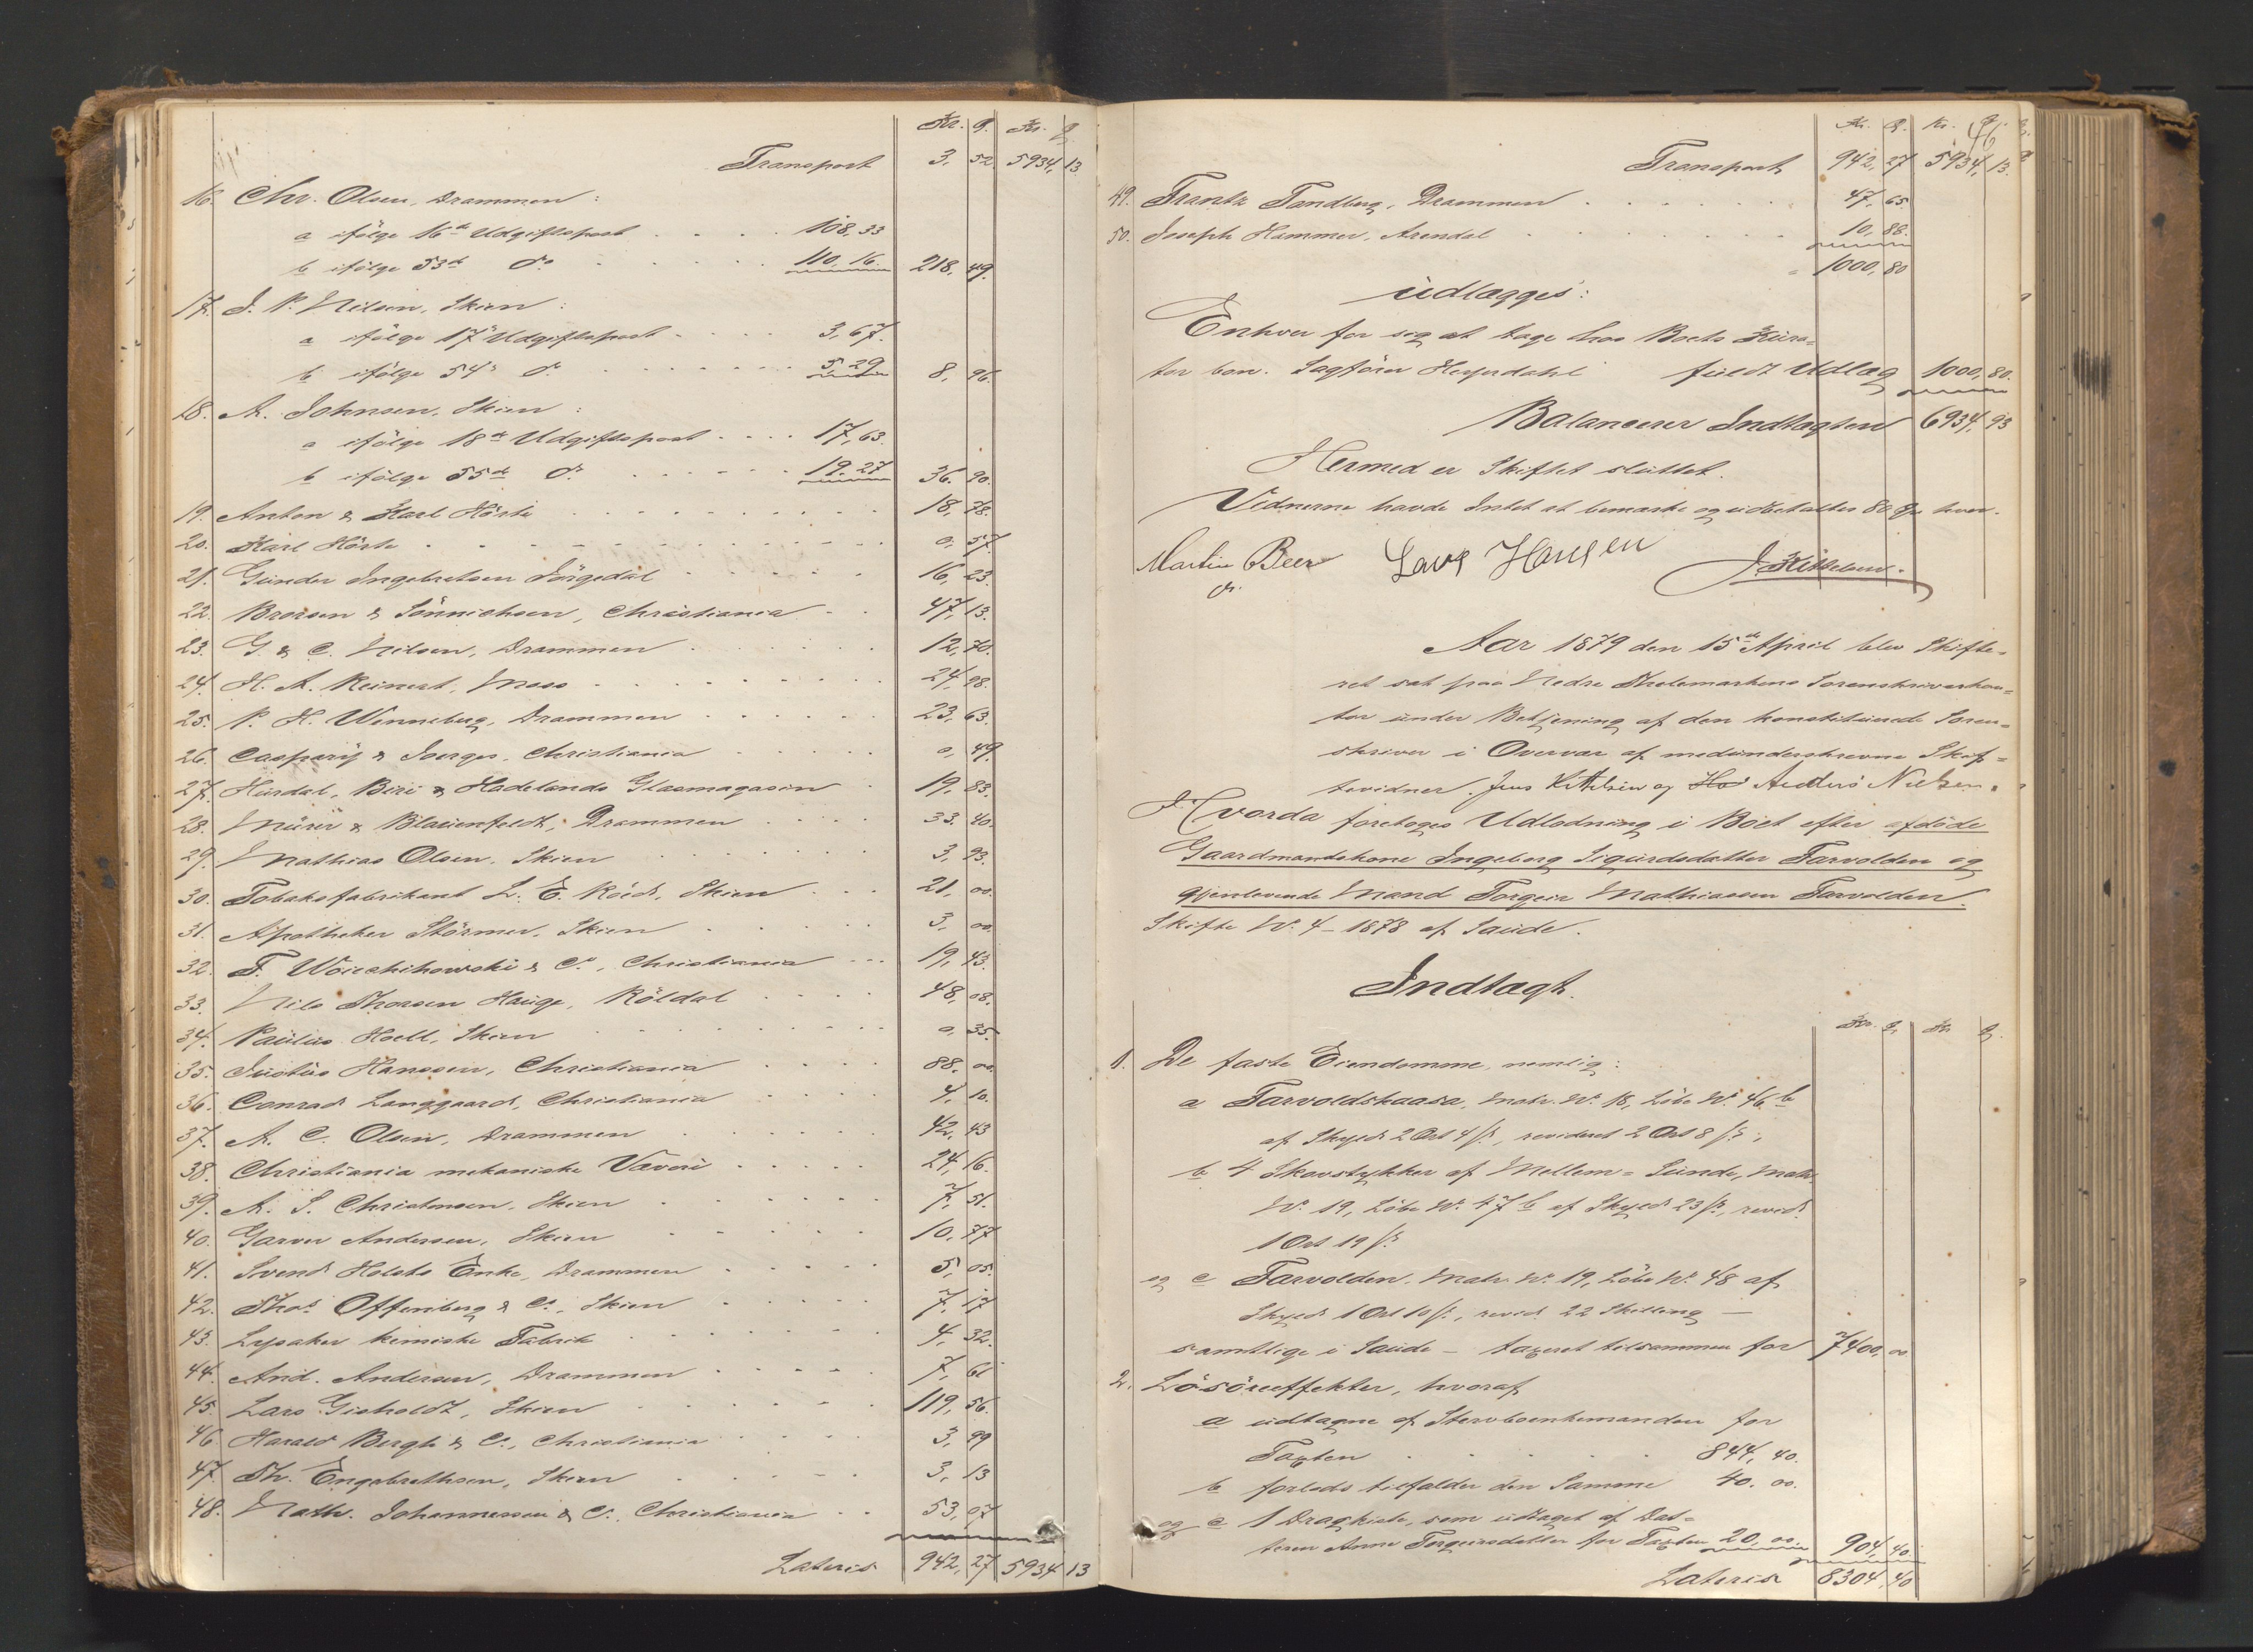 Kr. Ø. Kr. Ø
Transport 3, 52 5934, 13.
16. Chr. Olsen, Drammen:
a ifølge 16de Udgiftspost . . . . 108, 33
b ifølge 53de do . . . . . 110, 16. 218, 49.
17. J. P. Nilsen, Skien:
a ifølge 17de Udgiftspost . . . . 3, 67.
b ifølge 54de do . . . . . . 5, 29 8, 96.
18. A. Johnsen, Skien:
a ifølge 18de Udgiftspost . . . . 17, 63.
b ifølge 55de do . . . . . 19. 27 36. 90.
19. Anton & Karl Hørte . . . . . . . . 18, 78.
20. Karl Hørte . . . . . . . . . . 0, 57.
21. Gunder Ingebretsen Jørgedal . . . . . 16, 23.
22. Brorson & Sönnichsen, Christiania . . 47, 13.
23. G. & C. Nilsen, Drammen . . . . . 12, 70.
24. H. A. Reinert, Moss . . . . . . . 24, 98.
25. P. H. Wenneberg, Drammen . . . . . . 23, 63.
26. Caspary & Joerges, Christiania . . . . . 0, 49.
27. Hurdal, Biri & Hadelands Glasmagasin . 19, 83.
28. Mürer & Blauenfeldt, Drammen . . . . 33. 40.
29. Mathias Olsen, Skien . . . . . . . 3, 93.
30. Tobaksfabrikant L. E. Röed, Skien . . . 21, 00.
31. Apotheker Störmer, Skien . . . . . . 3, 00.
32. F. Woischikowski & Co., Christiania . . . 19, 43.
33. Nils Thorsen Hauge, Röldal . . . . 48, 08.
34. Paulus Hoell, Skien . . . . . . . . 0, 35.
35. Justus Hanssen, Christiania . . . . 88, 00.
36. Conrad Langgaard, Christiania . . . . 4, 10.
37. A. C. Olsen, Drammen . . . . . . 42, 43
38. Christiania mekaniske Væveri . . . . . 24, 16.
39. A. S. Christensen, Skien . . . . . . 7, 51.
40. Garver Andersen, Skien . . . . . . 10, 77
41. Svend Holsts Enke, Drammen . . . . . 5, 05.
42. Thos Offenberg & Co., Skien . . . . . . 7, 17
43. Lysaker kemiske Fabrik . . . . . . . 4, 32.
44. And. Andersen, Drammen . . . . . 7, 61
45. Lars Gisholdt, Skien . . . . . . . 119, 56.
46. Harald Bergh & Co., Christiania . . . . 3, 99
47. Th. Engebrethsen, Skien . . . . . 3, 13
48. Math. Johannessen & Co. Christiania . . 53, 07
Lateris 942, 27 5934 13
46
Kr. Ø. Kr. Ø.
Transport 942, 27 5934, 13.
49. Frantz Tandberg, Drammen . . . . . . 47, 65
50. Joseph Hammer, Arendal . . . . . . . 10, 88.
= 1000, 80
udlægges:
Enhver for sig at tage hos Boets Kura=
tor con. Sagfører Heyerdahl fuldt Udlæg 1000, 80.
Balancerer Indtægten 6934, 93
Hermed er Skiftet sluttet.
Vidnerne havde Intet at bemærke og udbetaltes 80 Øre hver.
Martin Beer Lars Hansen J. Kittelsen.
Aar 1879 den 15de April blev Skifte=
ret sat paa Nedre Thelemarkens Sorenskriverkon=
tor under Betjening af den konstituerede Soren=
skriver i Overvær af medunderskrevne Skif=
tevidner. Jens Kittelsen og Ho Anders Nielsen.
Hvorda foretoges Udlodning i Boet efter afdøde
Gaardmandskone Ingeborg Sigurdsdatter Farvolden og
gjenlevende Mand Torgeir Mathiassen Farvolden.
Skifte No 4 - 1878 af Saude.
Indtægt.
Kr. Ø. Kr Ø.
1. De faste Eiendomme, nemlig:
a Farvoldskaasa, Matr. No 18, Löbe No 46 b
af Skyld 2 Ort 4 ß, revideret 2 Ort 8 ß;
b 4 Skovstykker af Mellem=Sunde, Matr.
No 19, Löbe No 47 b af Skyld 23 ß, revid.
1 Ort 19 ß
og c Farvolden, Matr. No 19, Löbe No 48 af
Skyld 1 Ort 10 ß, revid. 22 Skilling —
samtlige i Saude — taxeret tilsammen for 7400, 00
2. Lösöreeffekter, hvoraf
a udtagne af Stervboenkemanden for
Taxten . . . . . 844, 40.
b forlods tilfalder den Samme 40. 00.
og c 1 Dragkiste, som udtaget af Dat=
teren Anne Torgeirsdatter for Taxten 20, 00. 904, 40
Lateris 8304, 40